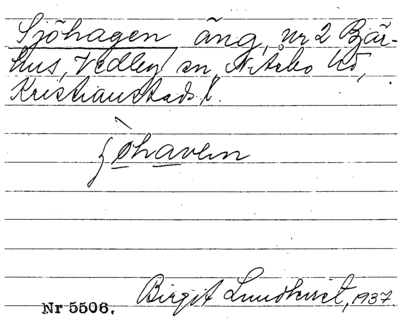 Sjöhagen äng, nr 2 Bjär-
hus, Vedby sn, N. Åsbo hd,
Kristianstads l.
Birgit Lundkvist, 1937.
Nr 5506.